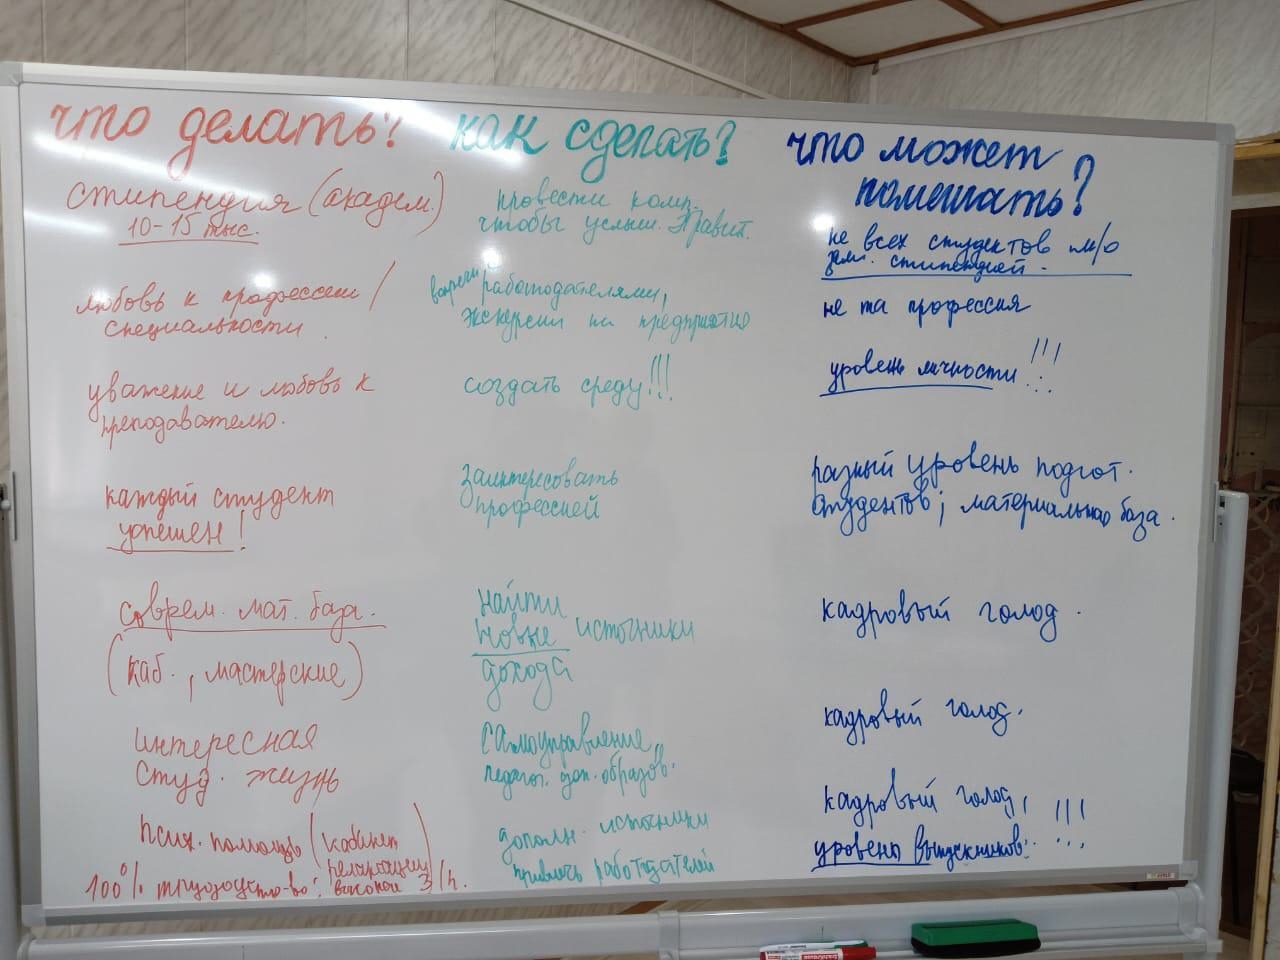 что делать?
стипендия (академ.)
10-15 тыс.
любовь к профессии /
специальности.
уважение и любовь к
преподавателю.
каждый студент
успешен!
соврем. мат. база.
(каб., мастерские)
интересная
студ. жизнь
псих. помощь (кабинет
релаксации)
100% трудоуст-во: высокой з/п.
как сделать?
провести комп.
чтобы услыш. Правит.
встречи работодателями,
экскурсии на предприятия
создать среду!!!
заинтересовать
профессией
найти
новые источники
дохода
самоуправление,
педагог. доп. образов.
дополн. источники
привлечь работодателей
что может
помешать?
не всех студентов м/о
стипендией.
не та профессия
уровень личности!!!
разный уровень подгот.
студентов; материальная база.
кадровый голод.
кадровый голод.
кадровый голод,
уровень выпускников. !!!